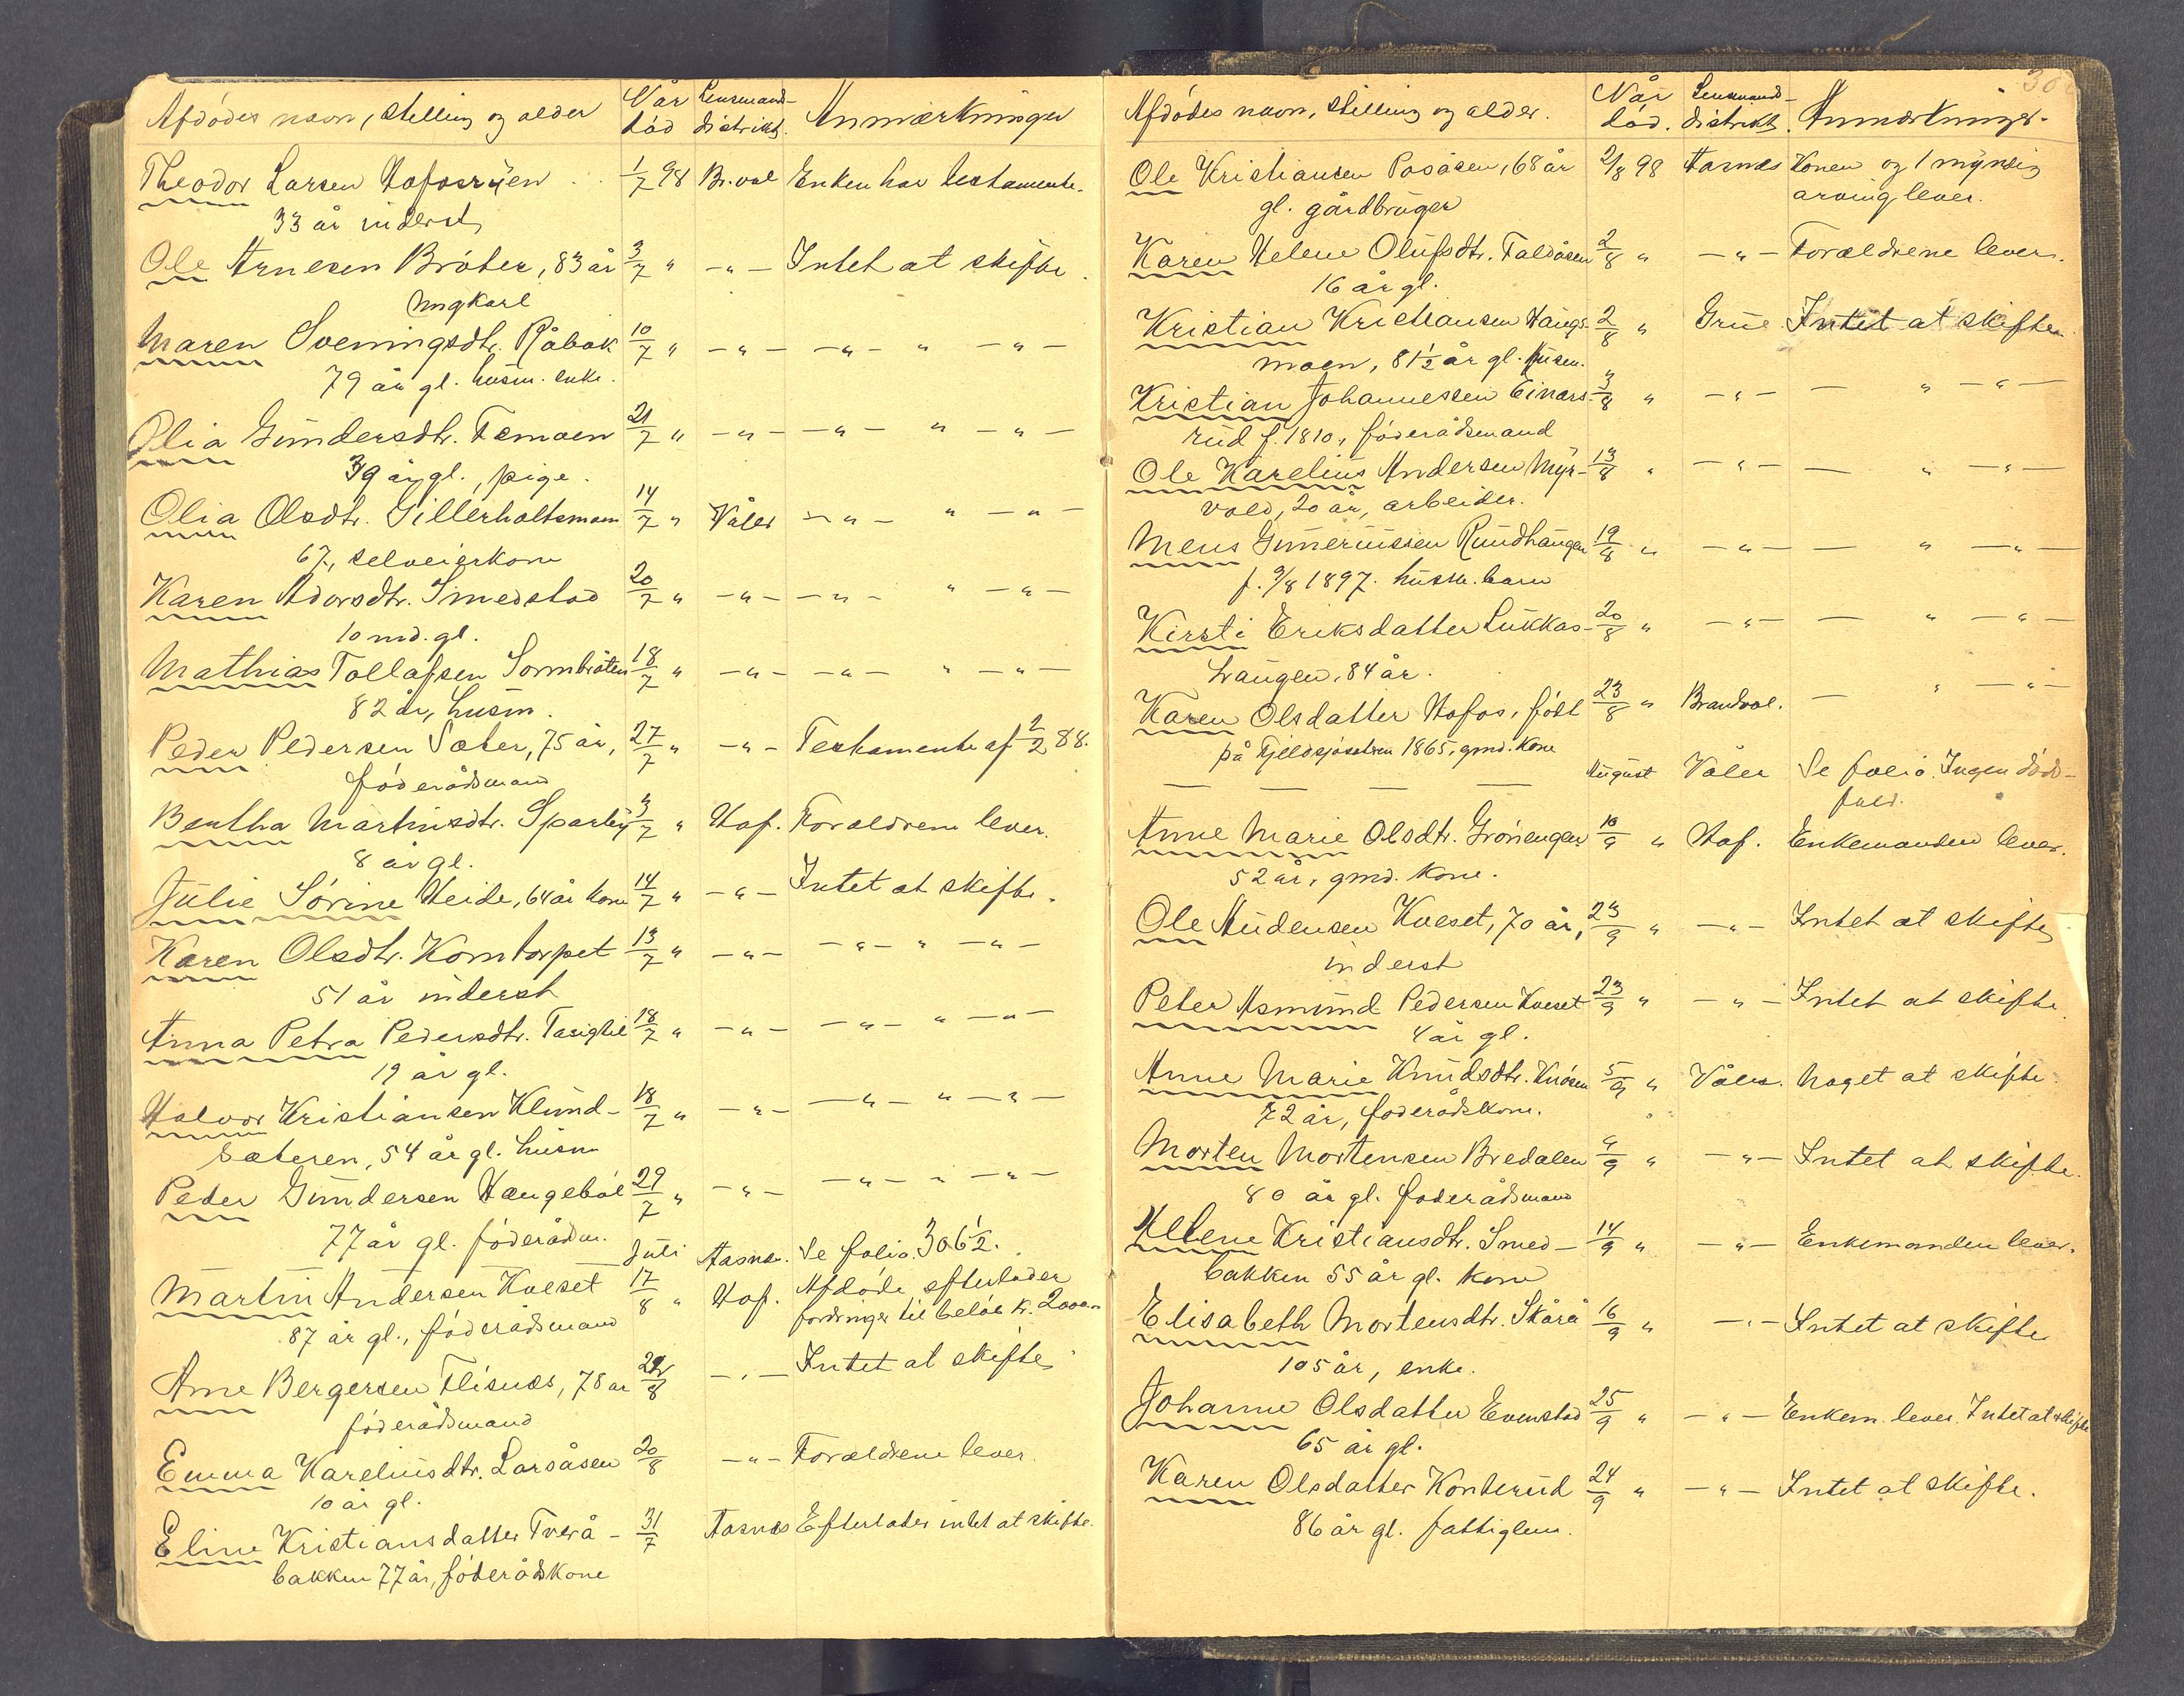 Afdødes navn, stilling og alder Når død Lensmands- distrikt. Anmærkninger
Theodor Larsen Hofosryen 1/7 98 Br.vol Enken har testamente.
33 år inderst
Ole Arnesen Bråten, 83 år 3/7 " - " - Intet at skifte.
Ungkarl
Maren Sveningsdtr. Råbak 10/7 " - " - - " - " - " -
79 år gl. husm. enke.
Olia Gundersdtr. Temoen 21/7 " - " - - " - " - " -
39 år gl., pige.
Olia Olsdtr. Gillerholtsmoen 14/7 " Våler - " - " - " -
67, selveierkone
Karen Adorsdtr. Smedstad 20/7 " - " - - " - " - " -
10 md. gl.
Mathias Tollafsen Sormbråten 18/7 " - " - - " - " - " -
82 år, husm.
Peder Pedersen Sæter, 75 år, 27/7 " - " - Testamente af 2/2 88.
føderådsmand
Bentha Martinsdtr. Sparby 3/7 " Hof. Forældrene lever.
8 år gl.
Julie Sørine Heide, 64 år kone 14/7 " - " - Intet at skifte.
Karen Olsdtr. Komtorpet 13/7 " - " - - " - " - " -
51 år inderst
Anna Petra Pedersdtr. 18/7 " - " - - " - " - " -
19 år gl.
Halvor Kristiansen Klund- 18/7 " - " - - " - " - " -
sæteren, 54 år gl. husm
Peder Gundersen Haugebøl 29/7 " - " - - " - " - " -
77 år gl. føderådm.
Juli Aasnæs. Se folio 306 1/2.
Martin Andersen Kveset 17/8 " Hof. Afdøde efterlader
87 år gl., føderådsmand fordringer til beløb kr. 2000.
Arne Bergersen Flisnes, 78 år 22/8 - " - Intet at skifte
føderådsmand
Emma Kareliusdtr. Larsåsen 20/8 - " - Forældrene lever.
10 år gl.
Eline Kristiansdatter Tverå- 31/7 Aasnæs Efterlader intet at skifte.
bakken 77 år, føderådskone
Afdødes navn, stilling og alder. Når død. Lensmands- distrikt. Anmærkninger.
Ole Kristiansen Posåsen, 68 år 2/8 98 Aasnæs Konen og 1 myndig
gl. gårdbruger arving lever.
Karen Helene Olufsdtr. Faldåsen 2/8 " - " - Forældrene lever.
16 år gl.
Kristian Kristiansen Haugs- 2/8 " Grue Intet at skifte.
moen, 81 1/2 år gl. husm.
Kristian Johannessen Einars- 3/8 " - " - - " - " -
rud f. 1810, føderådsmand
Ole Karelius Andersen Myr- 13/8 " - " - - " - " -
vold, 20 år, arbeider.
Mens Guneriussen Rundhaugen 19/8 " - " - - " - " -
f. 9/8 1897. husm. barn
Kirsti Eriksdatter Lukkas- 20/8 " - " - - " - " -
haugen, 84 år.
Karen Olsdatter Hofos, født 23/8 " Brandval. - " - " -
på Fjeldsjøsætren 1865, gmd. kone
— — — — August Våler Se folio. Ingen døds-
fald.
Anne Marie Olsdtr. Grønengen 10/9 " Hof. Enkemanden lever.
52 år, gmd. kone.
Ole Audensen Kveset, 70 år, 23/9 " - " - Intet at skifte
inderst
Peter Asmund Pedersen Kveset 23/9 " - " - Intet at skifte.
4 år gl.
Anne Marie Knudsdtr. Knøsen 5/9 " Våler. Noget at skifte.
72 år, føderådskone.
Morten Mortensen Bredalen 9/9 " - " - Intet at skifte.
80 år gl. føderådsmand
Helene Kristiansdtr. Smed- 14/9 " - " - Enkemanden lever.
bakken 55 år gl. kone
Elisabeth Mortensdtr. Skårå 16/9 " - " - Intet at skifte
105 år, enke.
Johanne Olsdatter Evenstad 25/9 " - " - Enkem. lever. Intet at skifte
65 år gl.
Karen Olsdatter Konterud 24/9 " - " - Intet at skifte.
86 år gl. fattiglem.